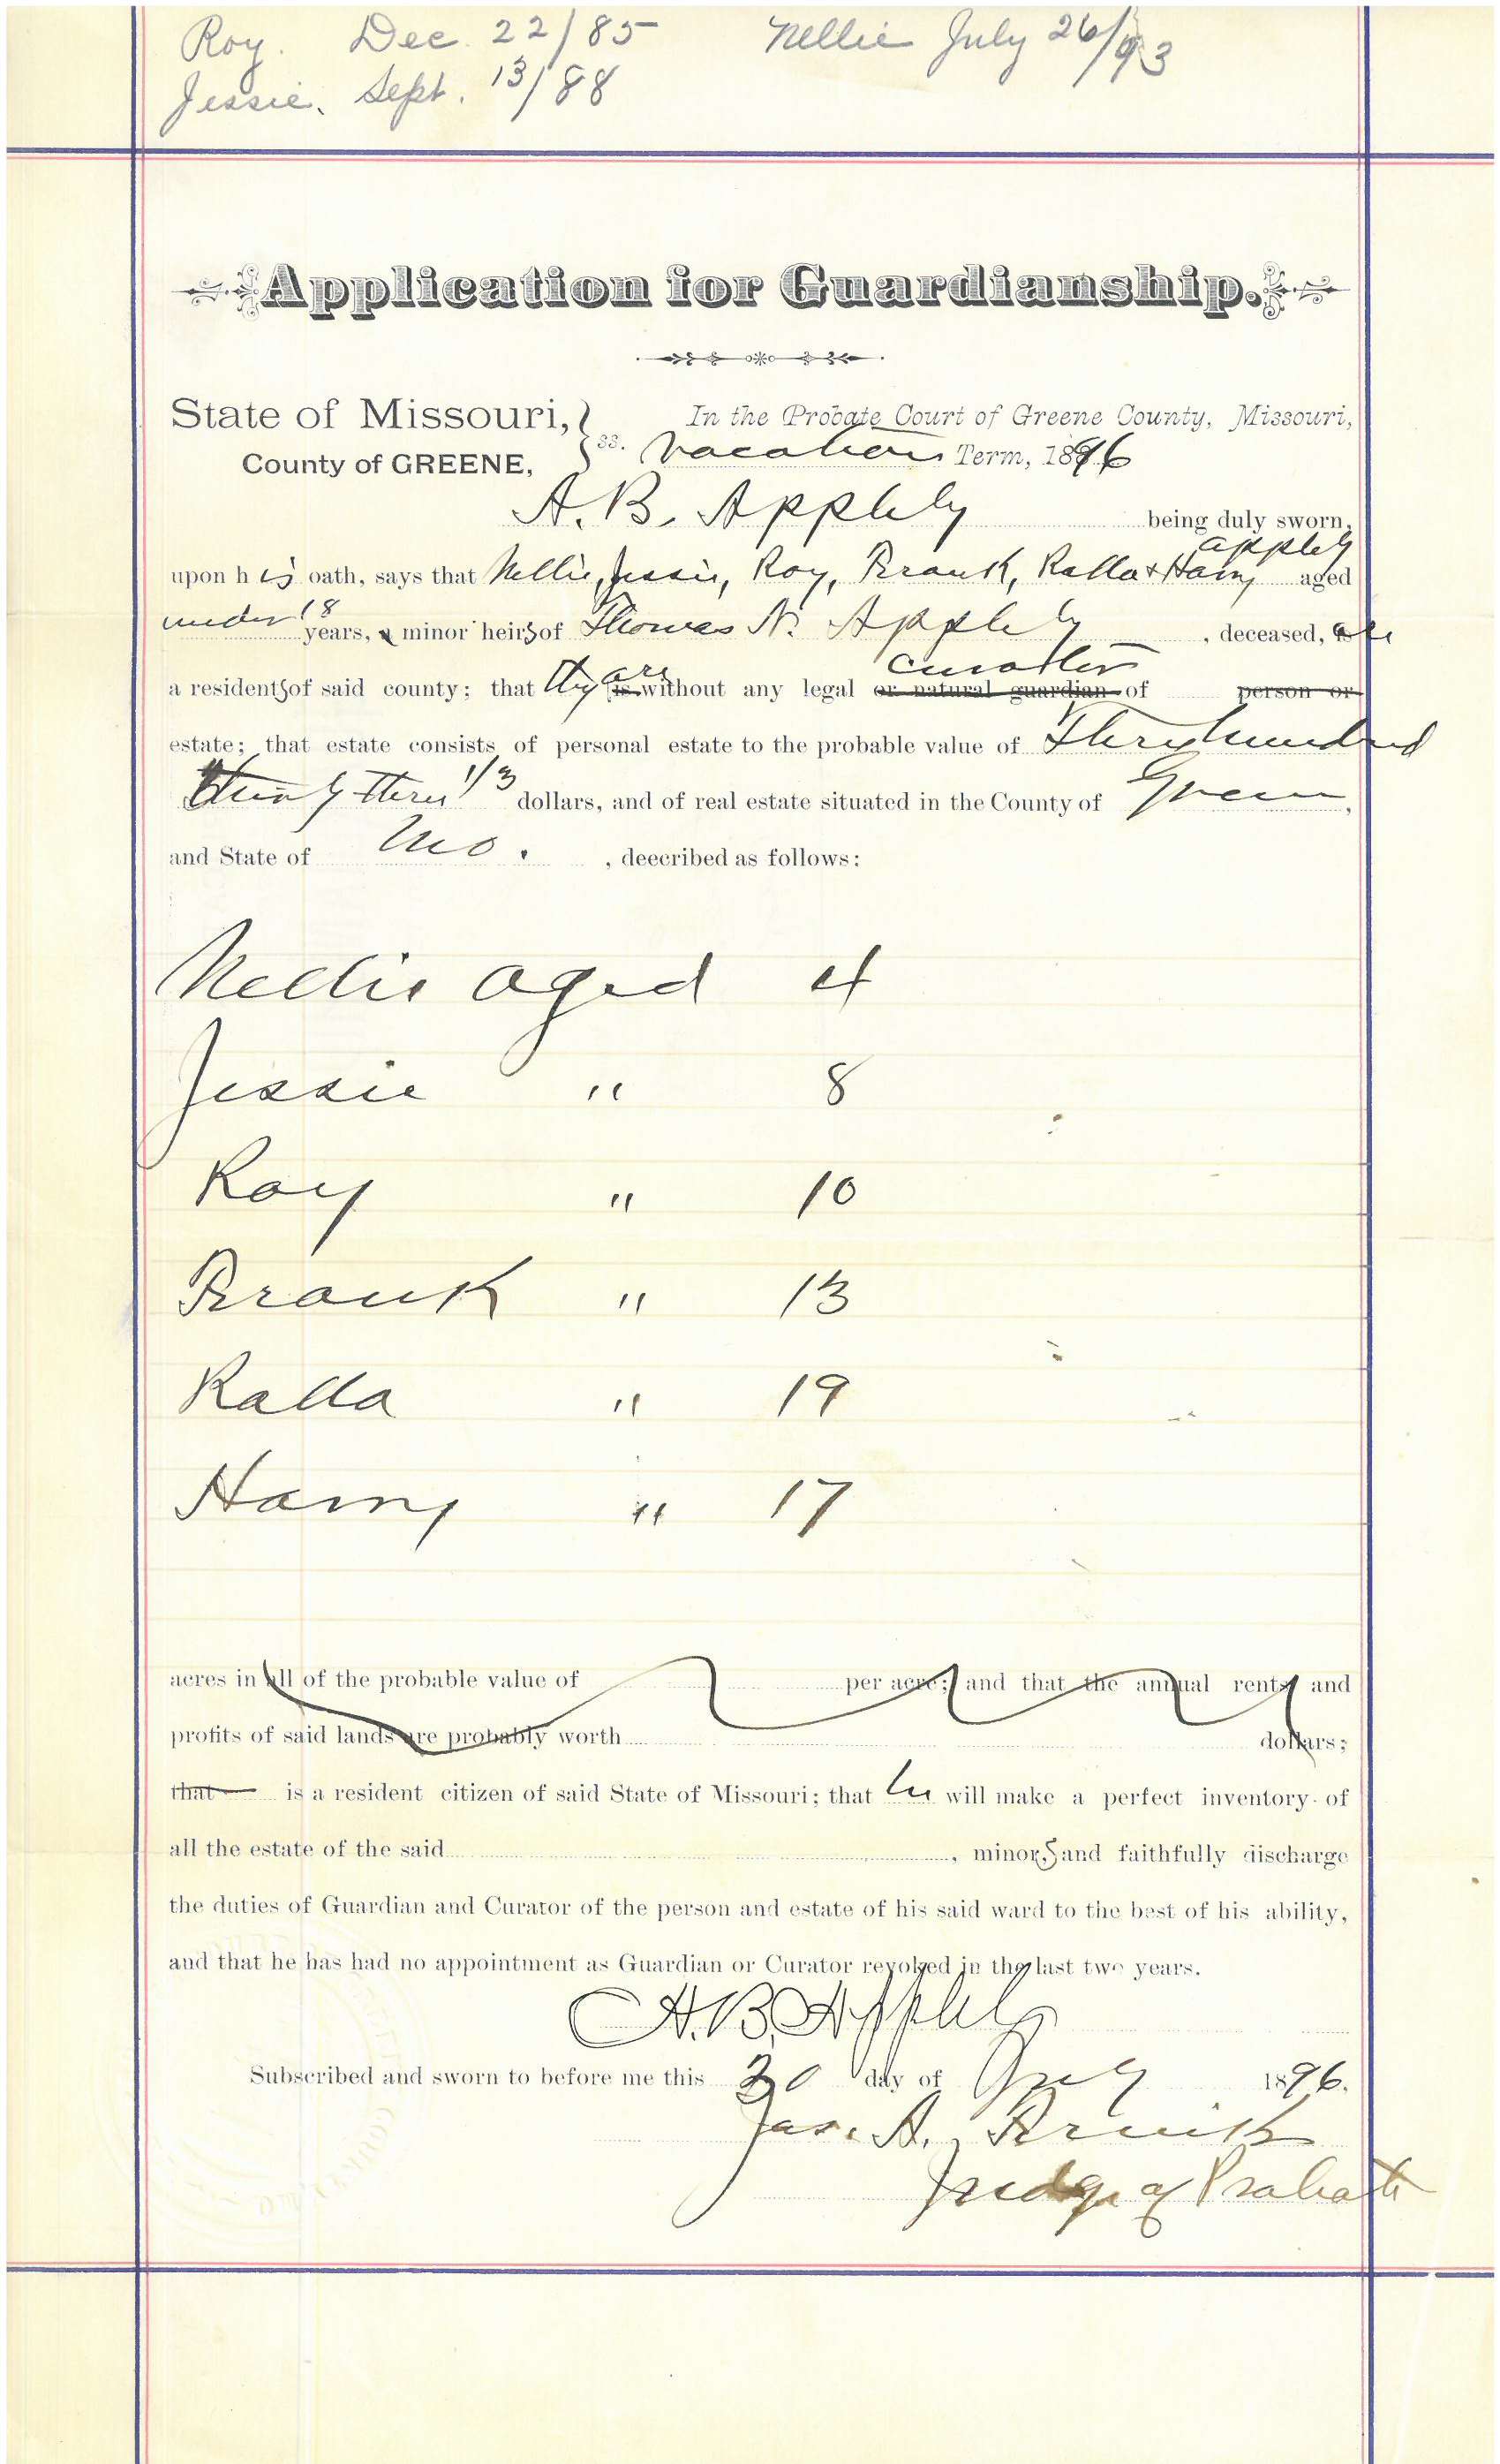 Roy. Dec. 22/85 Nellie July 26/93
Jessie. Sept. 13/88
Application for Guardianship.
State of Missouri, } ss. In the Probate Court of Greene County, Missouri,
County of GREENE, Vacation Term, 1896
A. B. Appleby being duly sworn,
Appleby
upon his oath, says that Nellie, Jessie, Roy, Frank, Ralla & Harry aged
under 18 years, a minor heirs of Thomas N. Appleby, deceased, are
are curator
a residents of said county; that they is without any legal or natural guardian of person or
estate; that estate consists of personal estate to the probable value of Three hundred
thirty three 1/3 dollars, and of real estate situated in the County of Green,
and State of Mo. , deecribed as follows:
Nellie aged 4
Jessie " 8
Roy " 10
Frank " 13
Ralla " 19
Harry " 17
acres in all of the probable value of per acre; and that the annual rents and
profits of said lands are probably worth dollars;
that is a resident citizen of said State of Missouri; that he will make a perfect inventory of
all the estate of the said , minors, and faithfully discharge
the duties of Guardian and Curator of the person and estate of his said ward to the best of his ability,
and that he has had no appointment as Guardian or Curator revoked in the last two years.
A. B. Appleby
Subscribed and sworn to before me this 30 day of July 1896.
Jas. A.
Judge of Probate